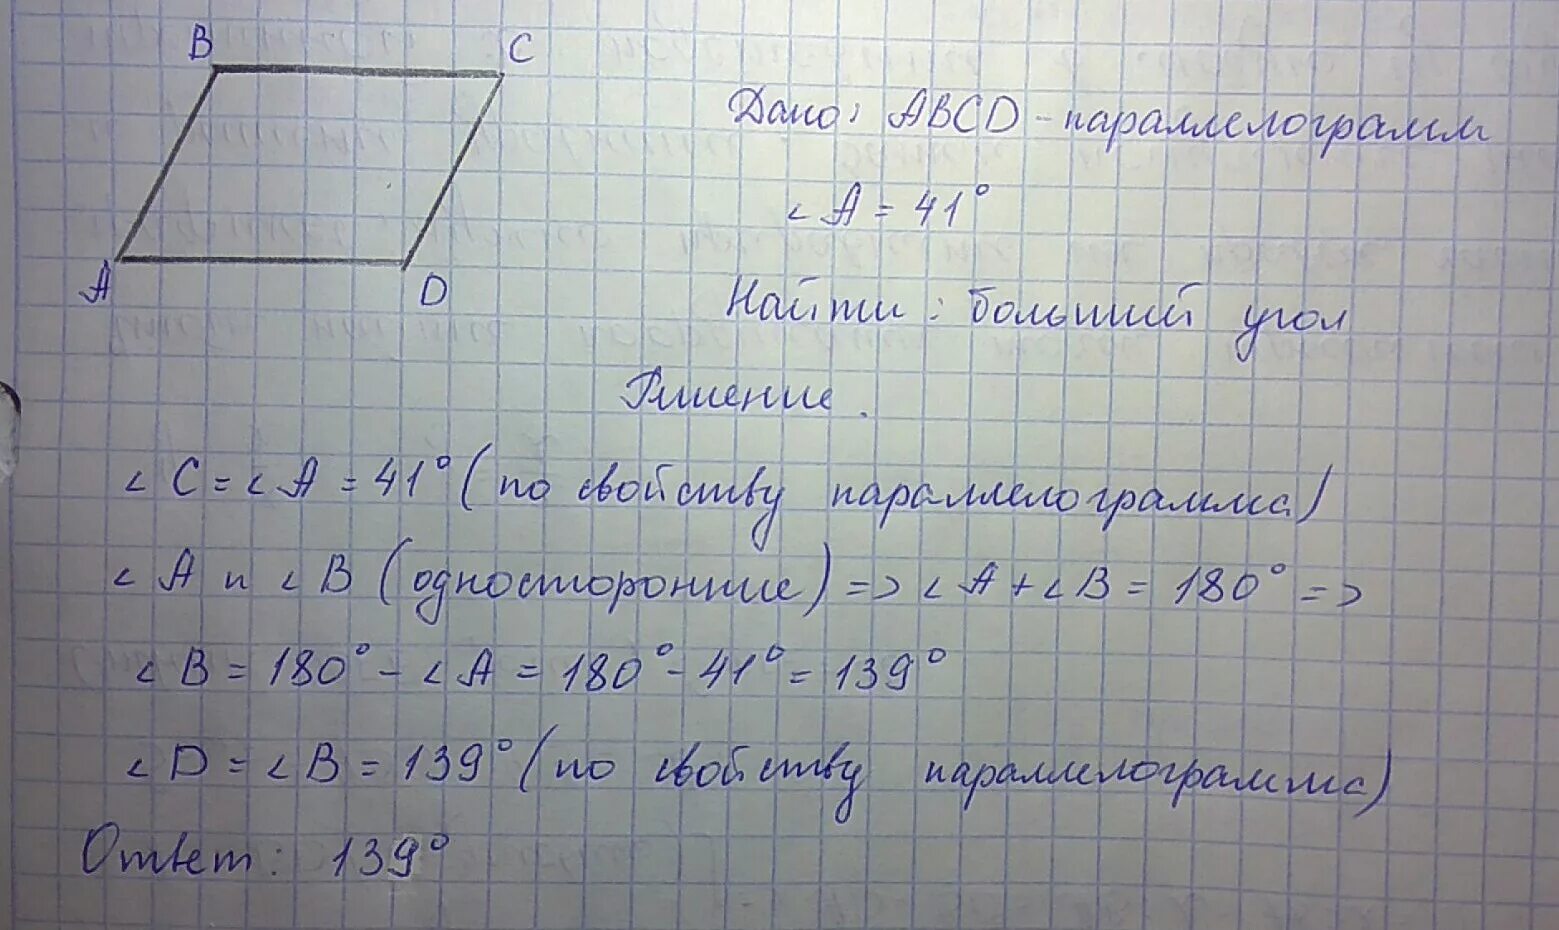 B C
A D
Дано: ABCD - параллелограмм
∠A = 41°
Найти: больший угол
Решение.
∠C = ∠A = 41° (по свойству параллелограмма)
∠A и ∠B (односторонние) => ∠A + ∠B = 180° =>
∠B = 180° - ∠A = 180° - 41° = 139°
∠D = ∠B = 139° (по свойству параллелограмма)
Ответ: 139°